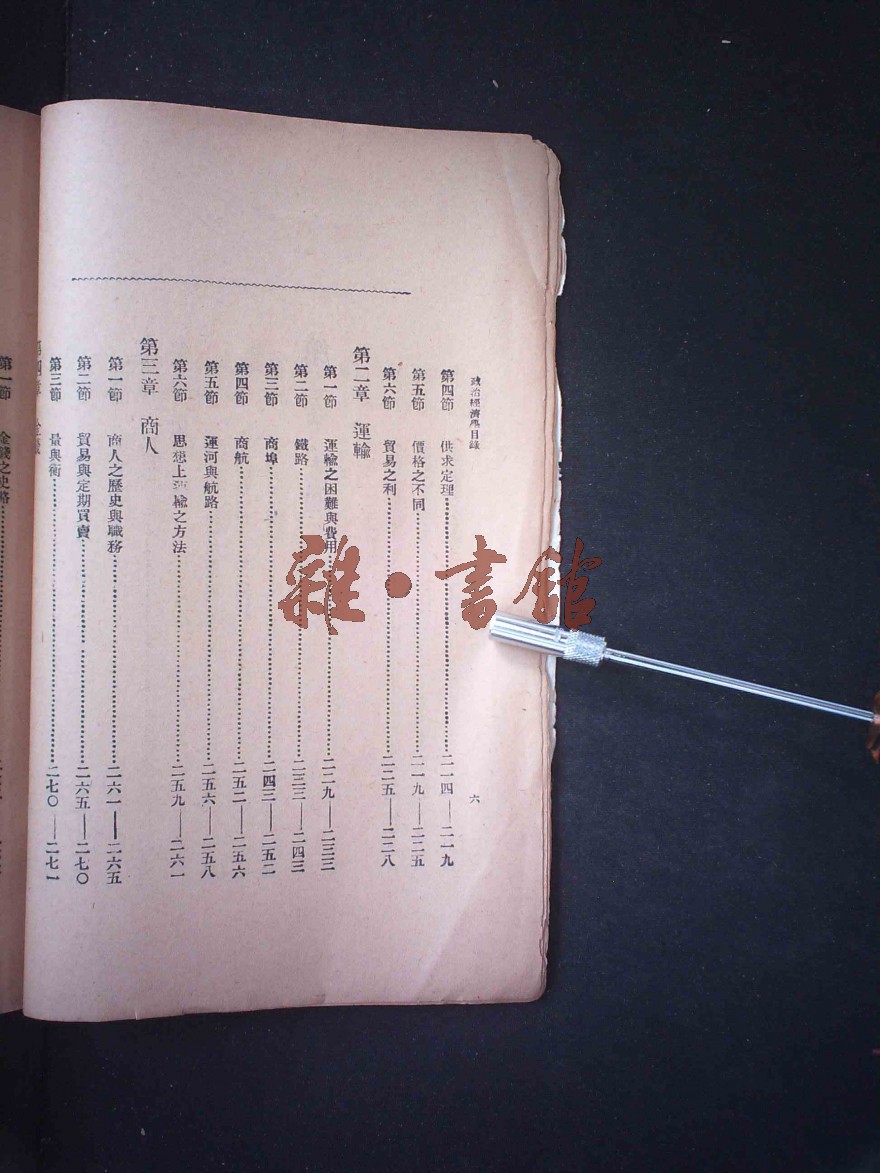 政治經濟學目錄
六
第四節 供求定理……二一四——二一九
第五節 價格之不同……二一九——二二五
第六節 貿易之利……二二五——二二八
第二章 運輸
第一節 運輸之困難與費用……二二九——二三三
第二節 鐵路……二三三——二四三
第三節 商埠……二四三——二五二
第四節 商航……二五二——二五六
第五節 運河與航路……二五六——二五八
第六節 思想上運輸之方法……二五九——二六一
第三章 商人
第一節 商人之歷史與職務……二六一——二六五
第二節 貿易與定期買賣……二六五——二七〇
第三節 量與衡……二七〇——二七一
第四章
第一節 金錢之史略
雜·書館